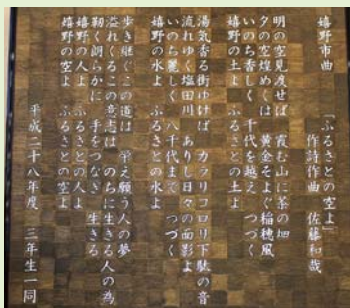 嬉野市曲
「ふるさとの空よ」
作詩作曲 佐藤和哉
明の空見渡せば 霞む山に茶の畑
夕の空煌めくは 黄金そよぐ稲穂風
いのち香しく 千代を越え つづく
嬉野の土よ ふるさとの土よ
湯気香る街ゆけば カラリコロリ下駄の音
流れゆく塩田川 ありし日々の面影よ
いのち麗しく 八千代まで つづく
嬉野の水よ ふるさとの水よ
歩き継ぐこの道は 栄え願う人の夢
溢れくるこの意志は のちに生きる人の為
靭く朗らかに 手をつなぎ 生きる
嬉野の人よ ふるさとの人よ
嬉野の空よ ふるさとの空よ
平成二十八年度 三年生一同